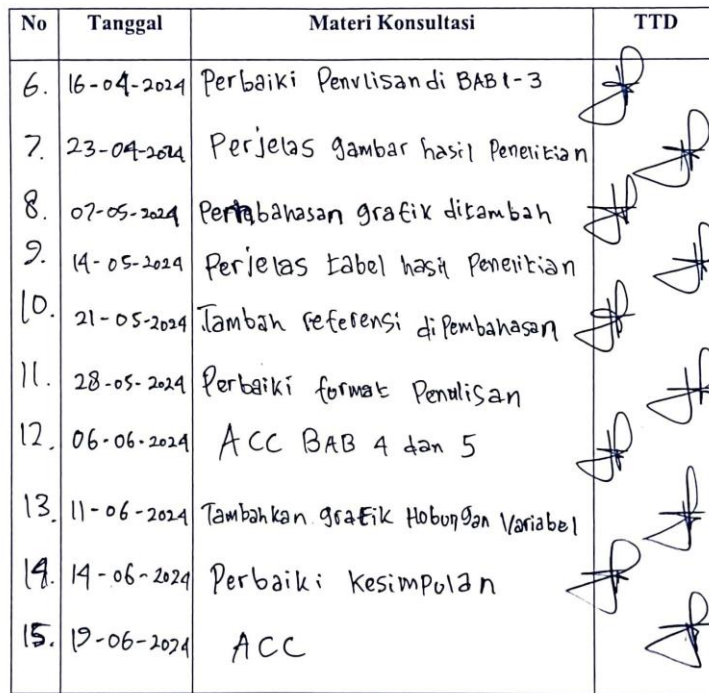 No Tanggal Materi Konsultasi TTD
6. 16-04-2024 Perbaiki Penulisan di BAB 1-3
7. 23-04-2024 Perjelas gambar hasil Penelitian
8. 07-05-2024 Pembahasan grafik ditambah
9. 14-05-2024 Perjelas tabel hasil Penelitian
10. 21-05-2024 Tambah referensi di Pembahasan
11. 28-05-2024 Perbaiki format Penulisan
12. 06-06-2024 ACC BAB 4 dan 5
13. 11-06-2024 Tambahkan grafik Hobungan Variabel
14. 14-06-2024 Perbaiki Kesimpulan
15. 19-06-2024 ACC